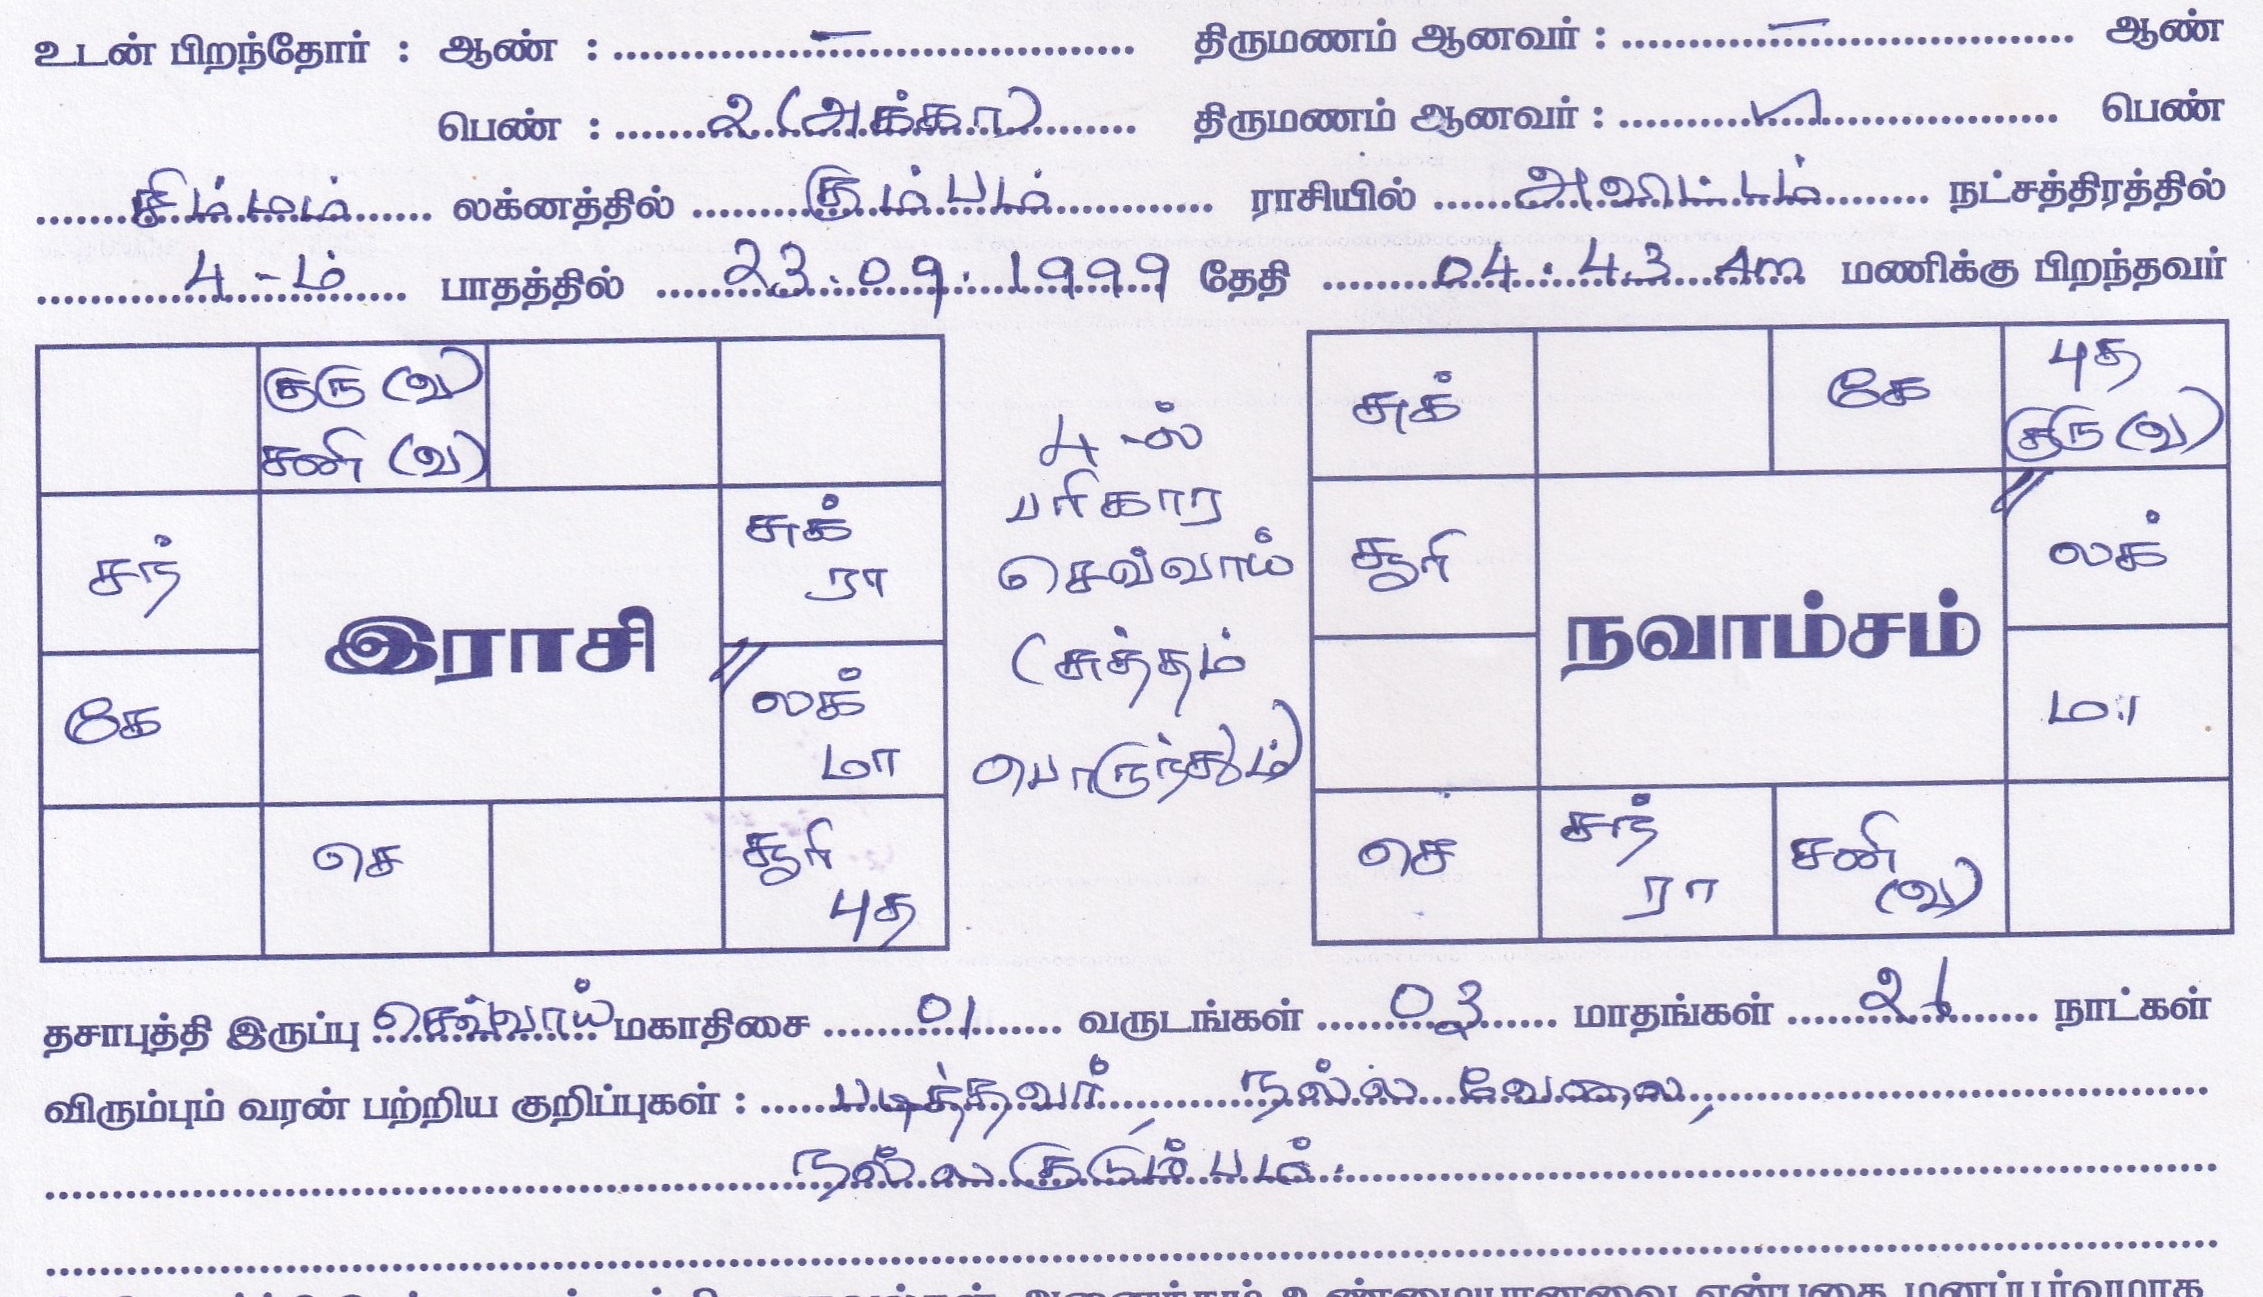 உடன் பிறந்தோர் : ஆண் : – திருமணம் ஆனவர் : – ஆண்
பெண் : 2 (அக்கா) திருமணம் ஆனவர் : பெண்
சிம்மம் லக்னத்தில் கும்பம் ராசியில் அவிட்டம் நட்சத்திரத்தில்
4-ம் பாதத்தில் 23.09.1999 தேதி 04.43 Am மணிக்கு பிறந்தவர்
குரு (வ)
சனி (வ)
சந்
சுக்
ரா
இராசி
கே
லக்
மா
செ
சூரி
புத
4-ல்
பரிகார
செவ்வாய்
(சுத்தம்
பொருந்தும்)
சுக்
கே
புத
குரு (வ)
சூரி
லக்
நவாம்சம்
மா
செ
சந்
ரா
சனி
(வ)
தசாபுத்தி இருப்பு செவ்வாய் மகாதிசை 01 வருடங்கள் 03 மாதங்கள் 21 நாட்கள்
விரும்பும் வரன் பற்றிய குறிப்புகள் : படித்தவர், நல்ல வேலை,
நல்ல குடும்பம்.